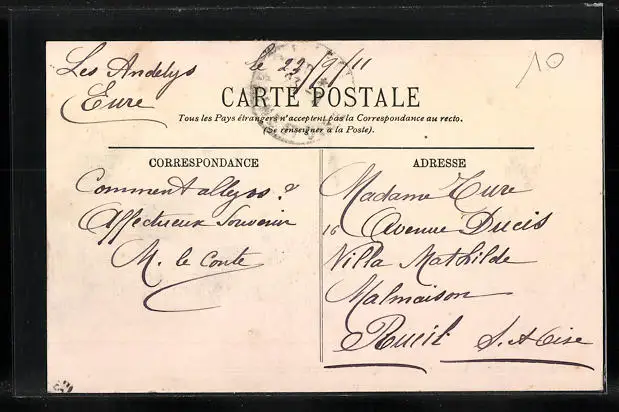 Les Andelys le 23/9/11
Eure
10
CARTE POSTALE
Tous les Pays étrangers n'acceptent pas la Correspondance au recto.
(Se renseigner à la Poste).
CORRESPONDANCE
Comment allez vs ?
Affectueux Souvenir
M. le Conte
ADRESSE
Madame Ture
16 Avenue Ducis
Villa Mathilde
Malmaison
Rueil S. et Oise